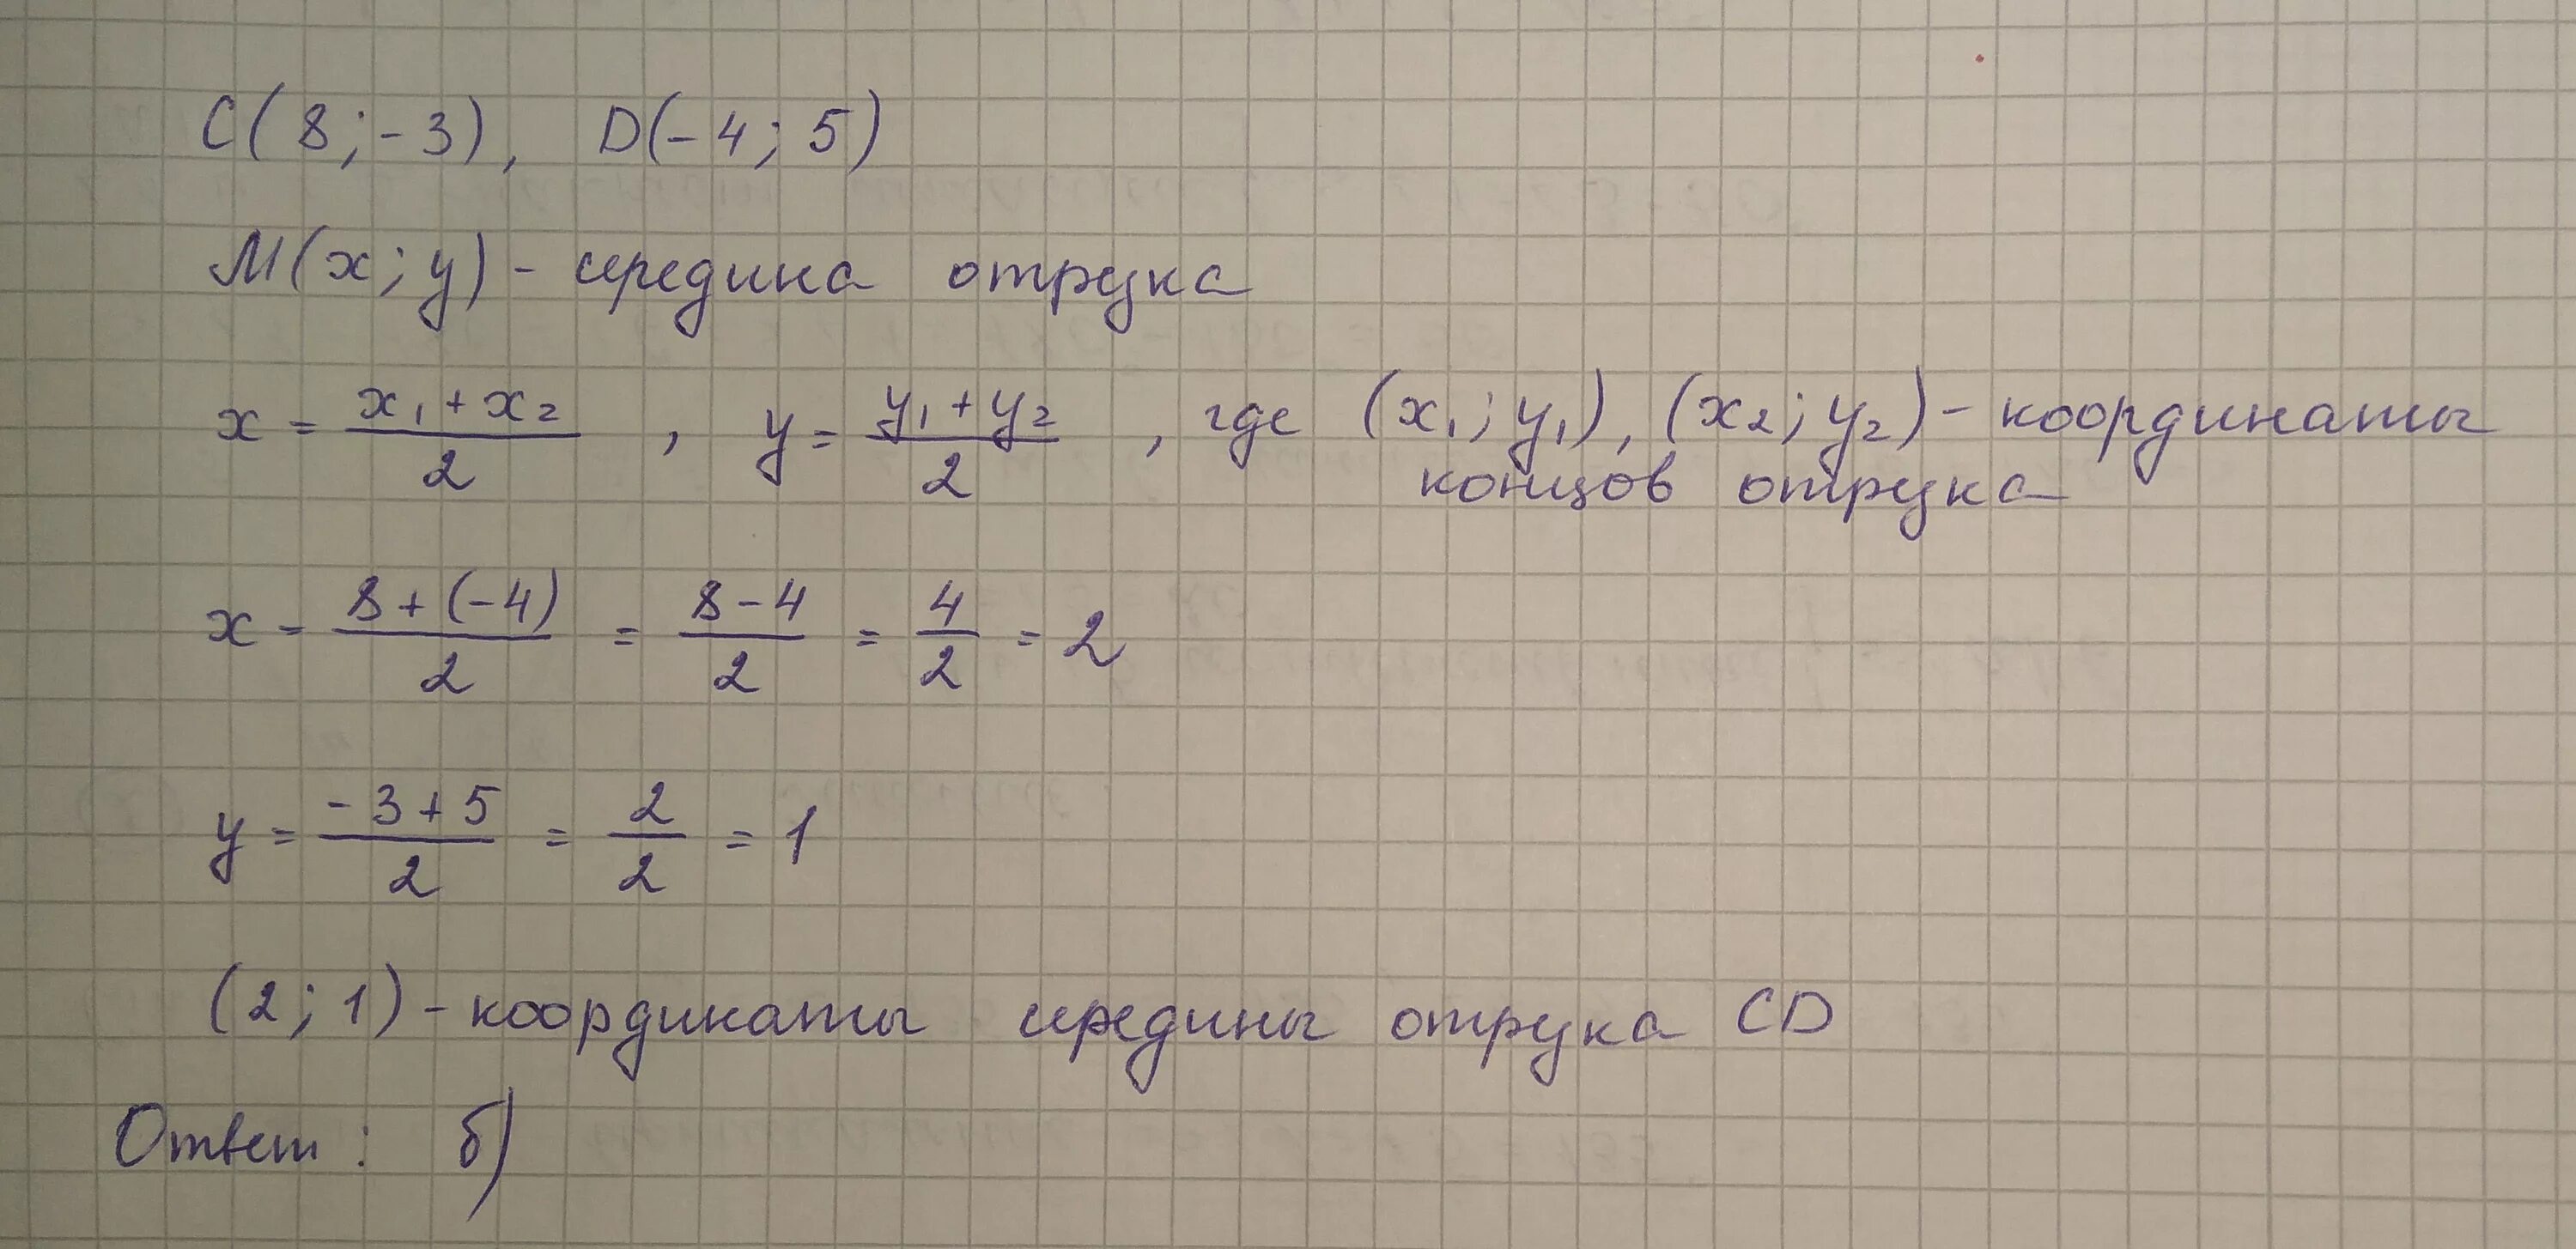 C(8;-3), D(-4;5)
M(x;y) - середина отрезка
x = \frac{x_1+x_2}{2}, y = \frac{y_1+y_2}{2}, где (x_1;y_1), (x_2;y_2) - координаты
концов отрезка
x = \frac{8+(-4)}{2} = \frac{8-4}{2} = \frac{4}{2} = 2
y = \frac{-3+5}{2} = \frac{2}{2} = 1
(2;1) - координаты середины отрезка CD
Ответ: б)